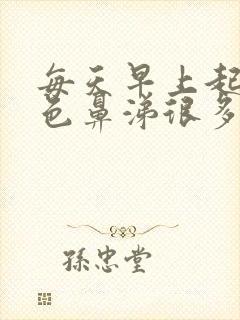 每天早上起
色鼻涕很多
孫忠堂